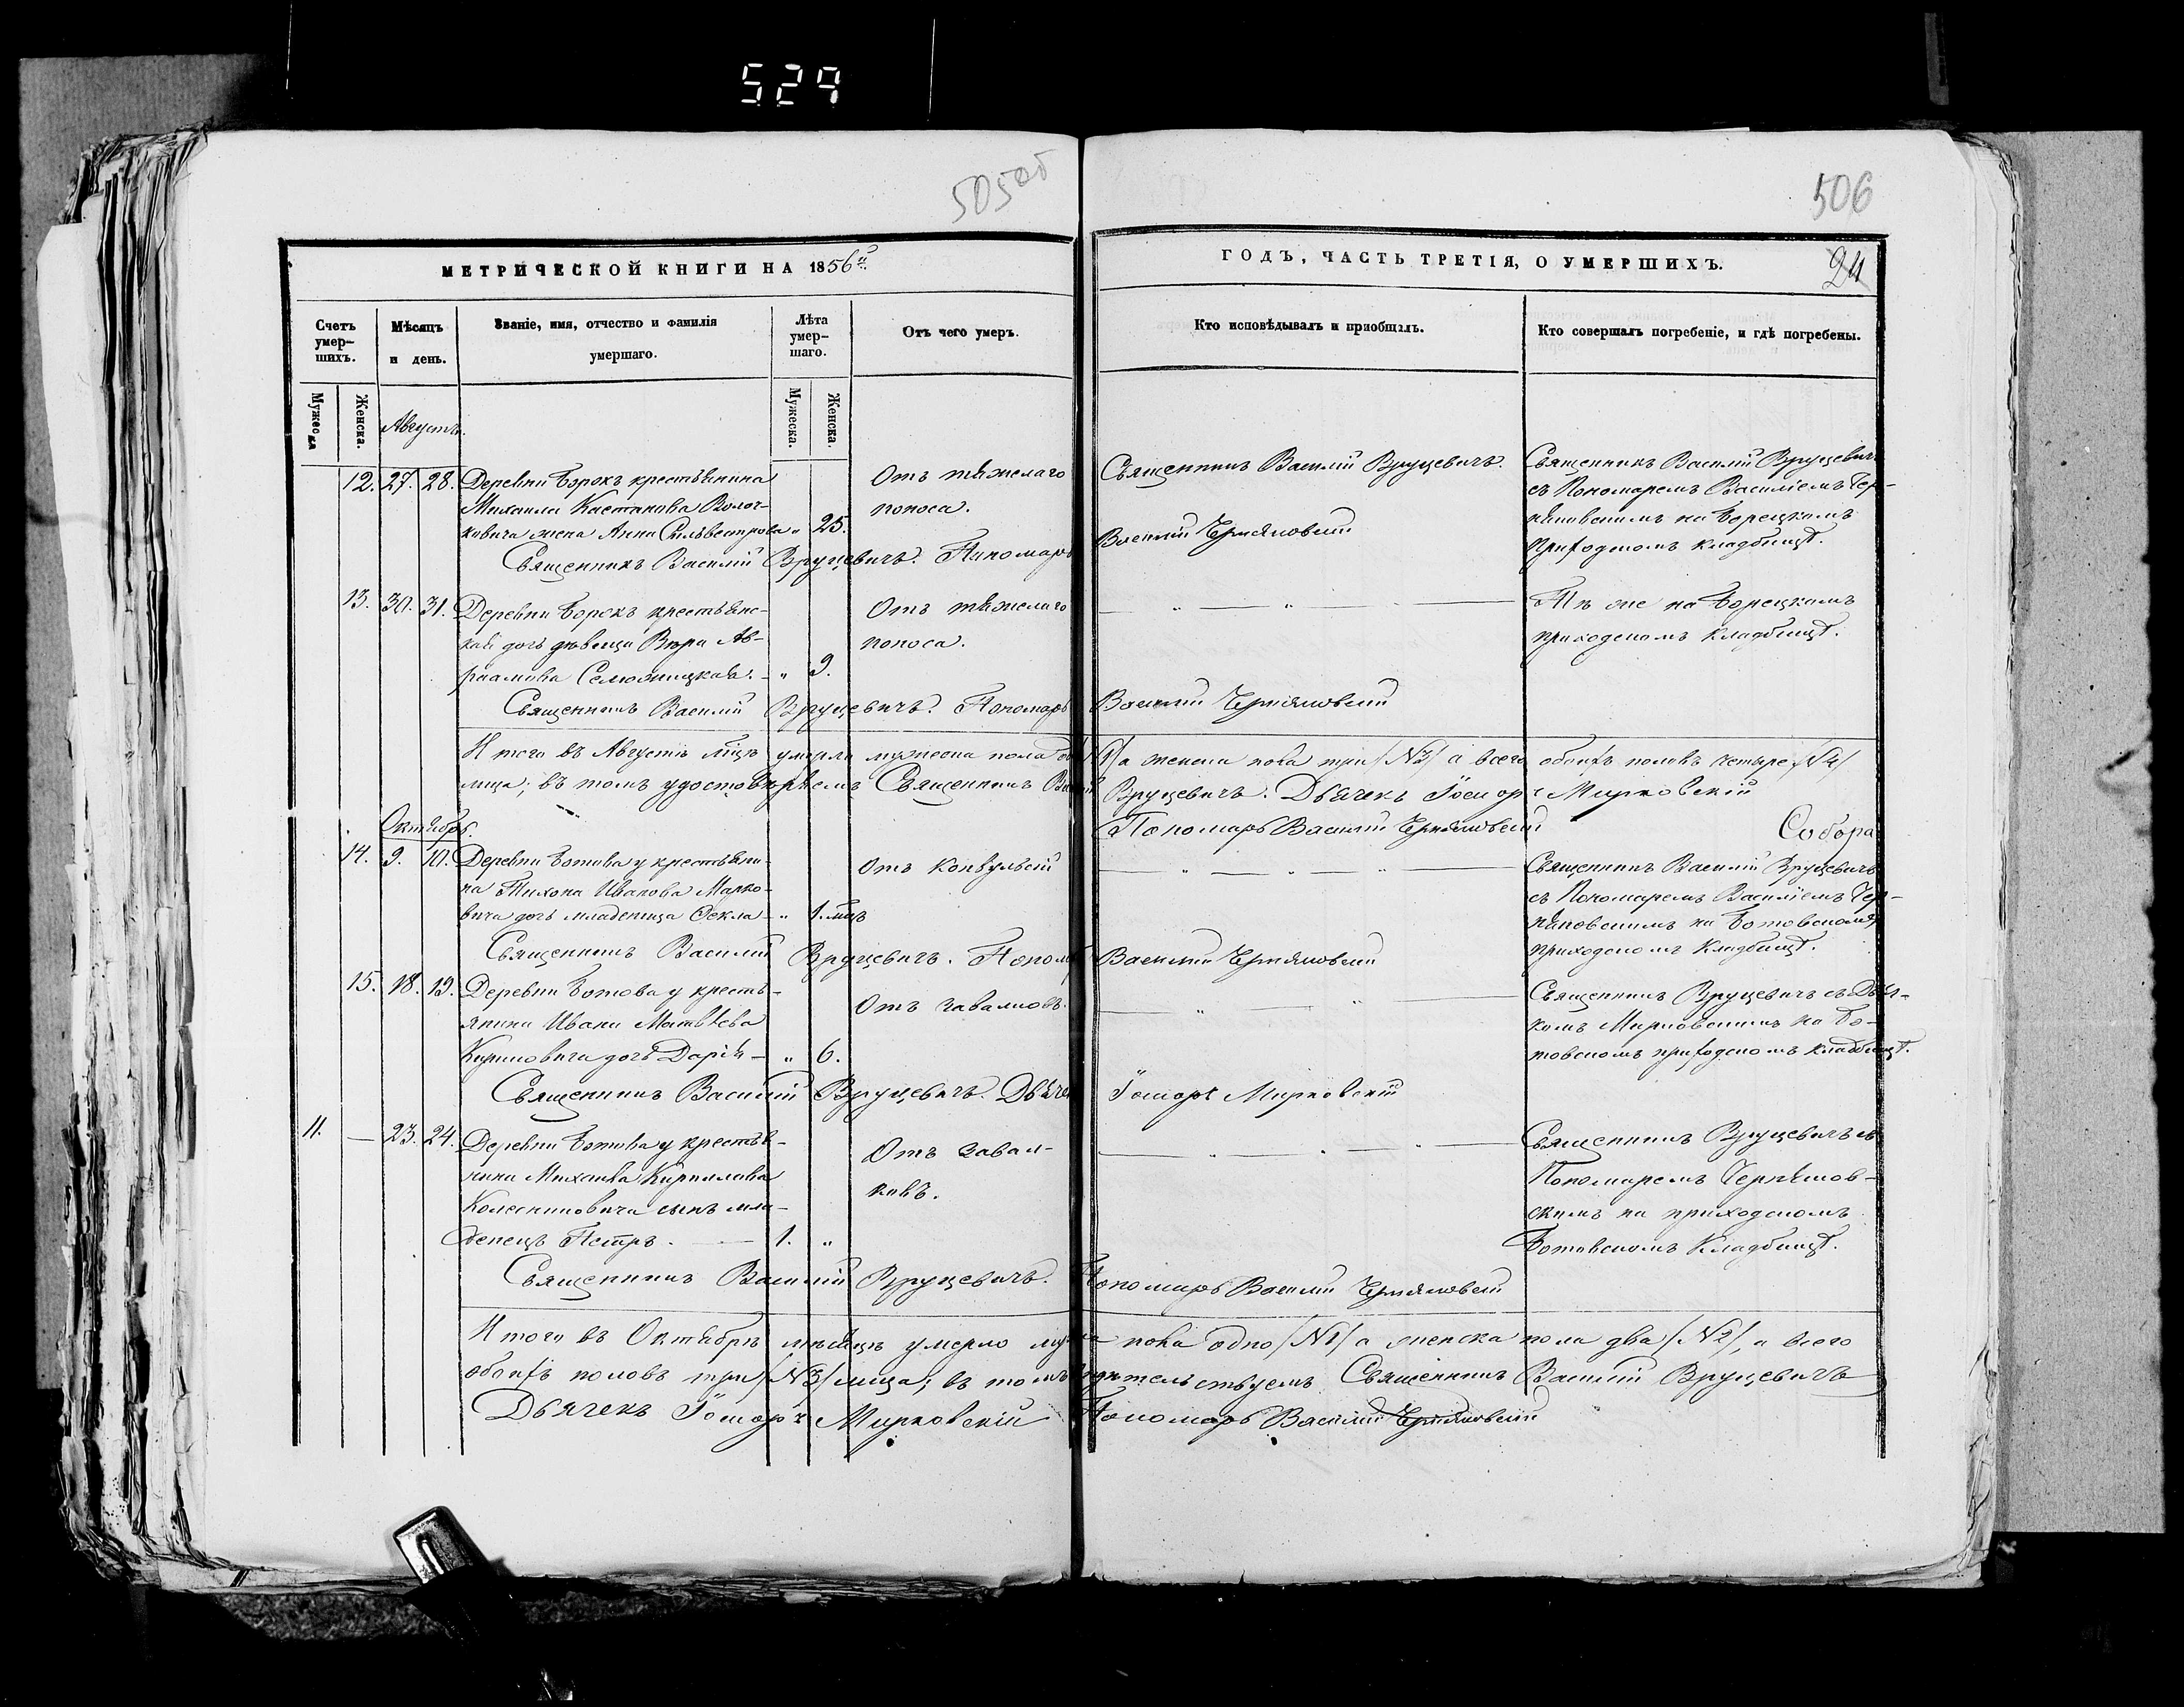 529
505об
506
МЕТРИЧЕСКОЙ КНИГИ НА 1856й
ГОДЪ, ЧАСТЬ ТРЕТІЯ, О УМЕРШИХЪ.
24
Счетъ умер-
шихъ.
Мѣсяцъ
и день.
Званіе, имя, отчество и фамилія
умершаго.
Лѣта
умер-
шаго.
Отъ чего умеръ.
Кто исповѣдывалъ и пріобщалъ.
Кто совершалъ погребеніе, и гдѣ погребены.
Мужеска
Женска.
Мужеска.
Женска.
Августъ.
12. 27. 28. Деревни Борокъ крестьянина
Михаила Волоч-
ковича жена Анна Сильвестрова „ 25.
Отъ тяжелаго
поноса.
Священникъ Василій Вруцевичъ.
Священникъ Василій Вруцевичъ
съ Пономаремъ Василіемъ Чер-
няковскимъ на Борецкомъ
приходскомъ кладбищѣ.
Священникъ Василій Вруцевичъ. Пономарь Василій Черняковскій
13. 30. 31. Деревни Борокъ крестьянс-
кая дочь девица Вѣра Ав-
раамова „ 9.
Отъ тяжелаго
поноса.
Тѣ же на Борецкомъ
приходскомъ кладбищѣ.
Священникъ Василій Вруцевичъ. Пономарь Василій Черняковскій
Итого въ Августѣ мцѣ умерло мужеска пола /1/ а женска пола три /№3/ а всего обоихъ половъ четыре /№4/
лица; въ томъ удостовѣряемъ Священникъ Василій Вруцевичъ. Дьячекъ Мирковскій
Пономарь Василій Черняковскій
Собора
Октябрь.
14. 9. 10. ДеревниБотова у крестьяни-
на Тихона Иванова Марко-
вича дочь младеница Фекла „ 1. мцъ
Отъ конвульсій
Священникъ Василій Вруцевичъ
съ Пономаремъ Василіемъ Чер-
няковскимъ на Ботовскомъ
приходскомъ кладбищѣ.
Священникъ Василій Вруцевичъ. Поном Василій Черняковскій
15. 18. 19. Деревни Ботова у кресть-
янина Ивана Матвѣева
Кириловича дочь Дарія – „ 6.
Отъ завалковъ.
Священникъ Вруцевичъ съ Дья-
комъ Мирковскимъ на Бо-
товскомъ приходскомъ кладбищѣ.
Священникъ Василій Вруцевичъ. Дьячекъ Мирковскій
11. — 23. 24. Деревни Ботова у крестья-
нина Михаила Кириллова
Колесниковича сынъ мла-
денецъ Петръ. — 1. „
Отъ завал-
ковъ.
Священникъ Вруцевичъ съ
Пономаремъ Черняков-
скимъ на приходскомъ
Ботовскомъ кладбищѣ.
Священникъ Василій Вруцевичъ. Пономарь Василій Черняковскій
Итого въ Октябрѣ мѣсяцѣ умерло пола одно /№1/ а женска пола два /№2/, а всего
обоихъ половъ три /№3/ лица; въ томъ Священникъ Василій Вруцевичъ
Дьячекъ Мирковскій Пономарь Василій Черняковскій